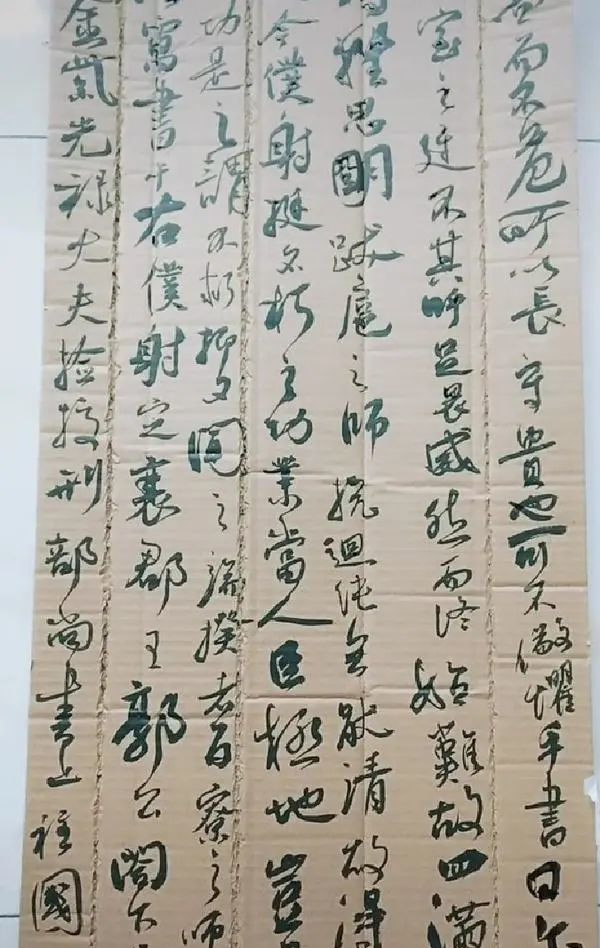 而不危所以長守貴也可不儆懼乎書曰
室之廷不其吁足畏威然而終始難故四滿
思明跋扈之師抗迴紇無猒請故得
令僕射挺不朽之功業當人臣極地豈
功是之謂不朽抑又聞之端揆者百寮之師
寫書于右僕射定襄郡王郭公閤下
金紫光禄大夫撿挍刑部尚書上柱國